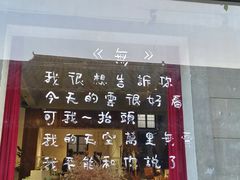 《無》
我很想告訴你
今天的雲很好看
可我一抬頭
我的天空萬里無雲
我不能和你說了